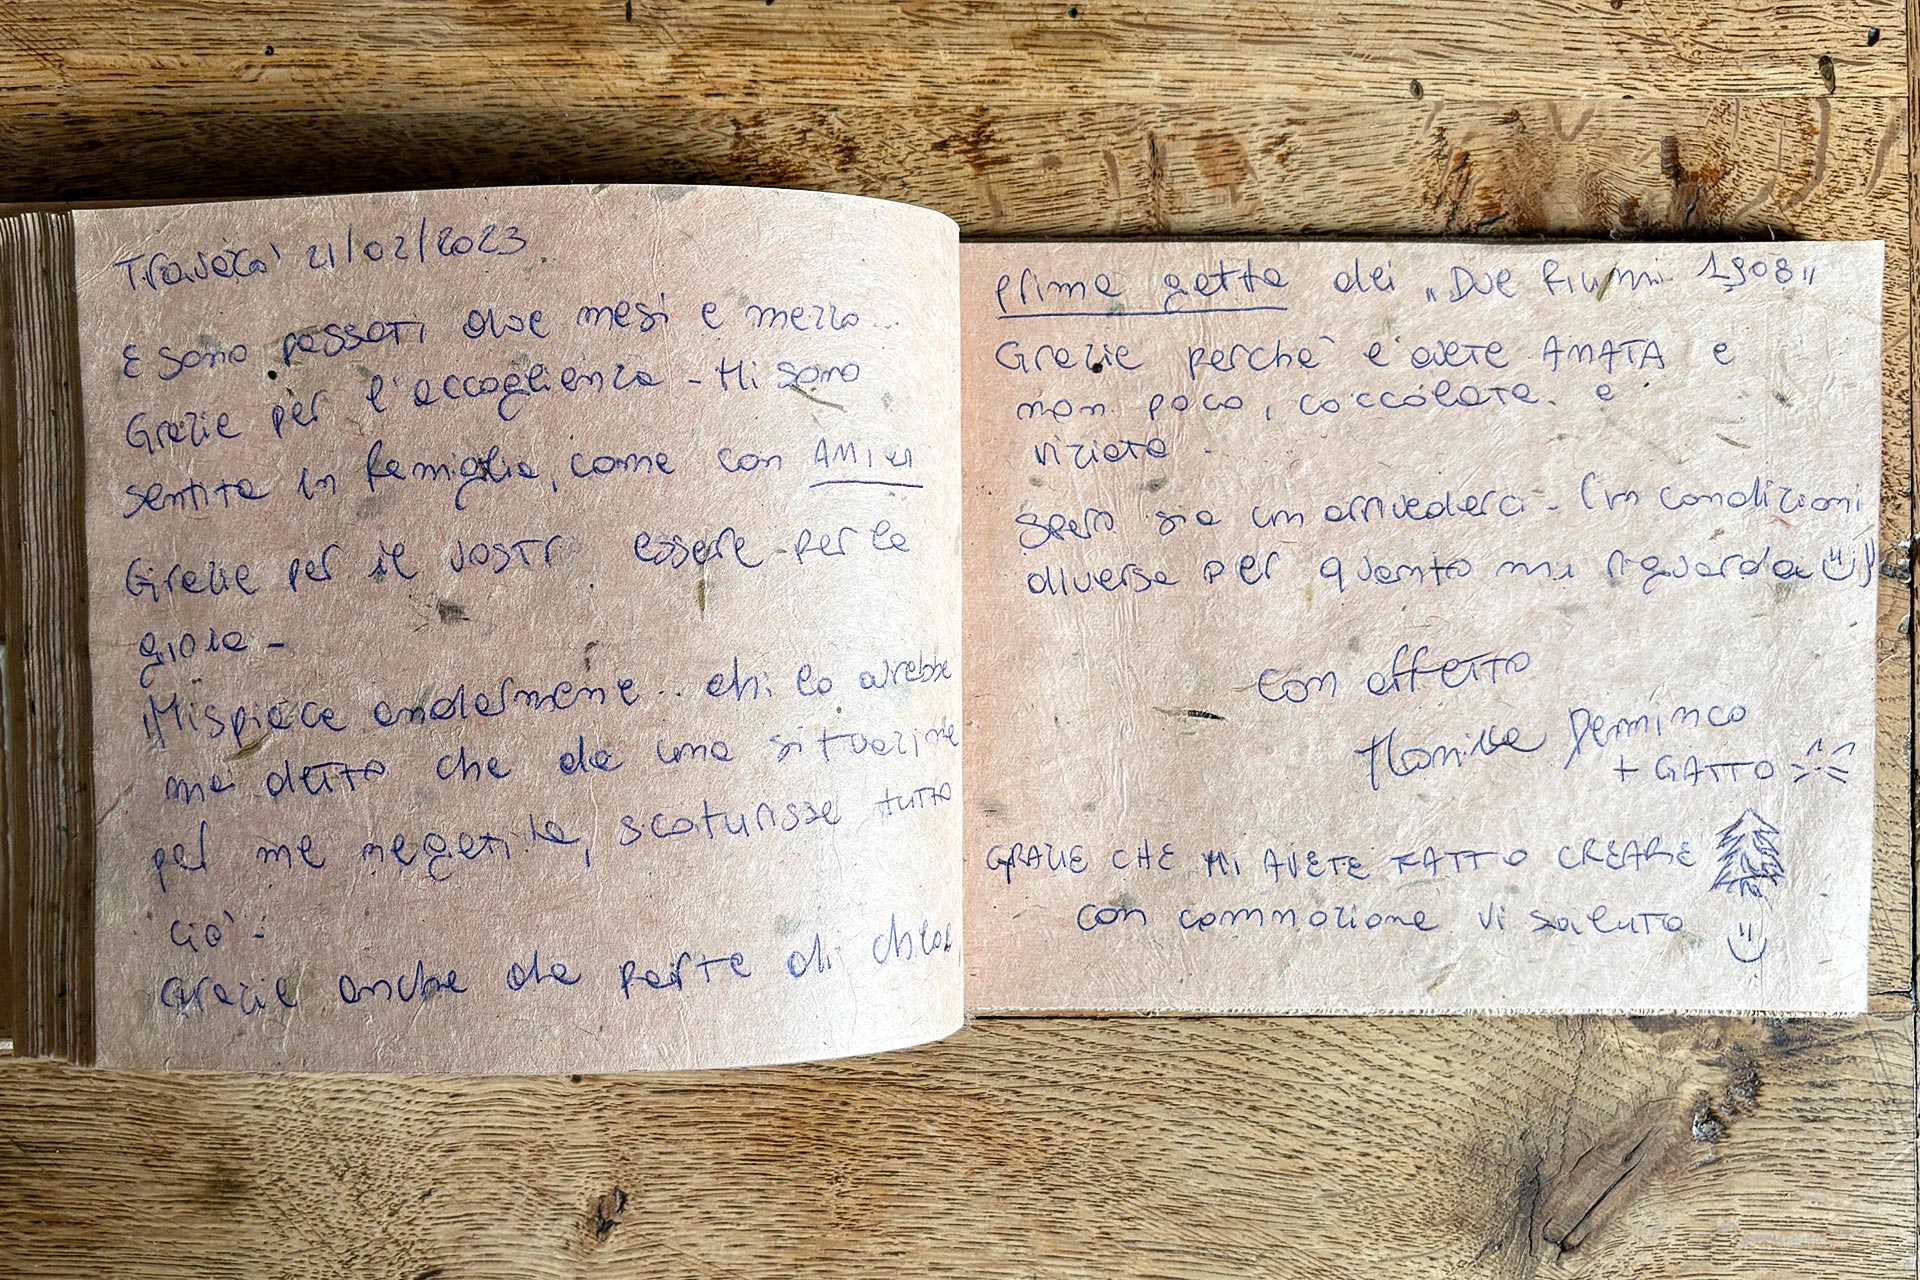 21/02/2023
E sono passati due mesi e mezzo...
Grazie per l'accoglienza - Mi sono
sentita in famiglia, come con AMICI
Grazie per il vostro essere per la
gioia -
Mi spiace andarmene.. chi lo avrebbe
mai detto che da una situazione
per me negativa, scaturisse tutto
ciò -
Grazie anche da parte di chloe,
prima gatta dei "Due Fiumi 1908"
Grazie perchè l'avete AMATA e
non poco, coccolata. e
viziata.
Spero sia un arrivederci - (in condizioni
diverse per quanto mi riguarda
con affetto
+ GATTO
GRAZIE CHE MI AVETE FATTO CREARE
con commozione vi saluto